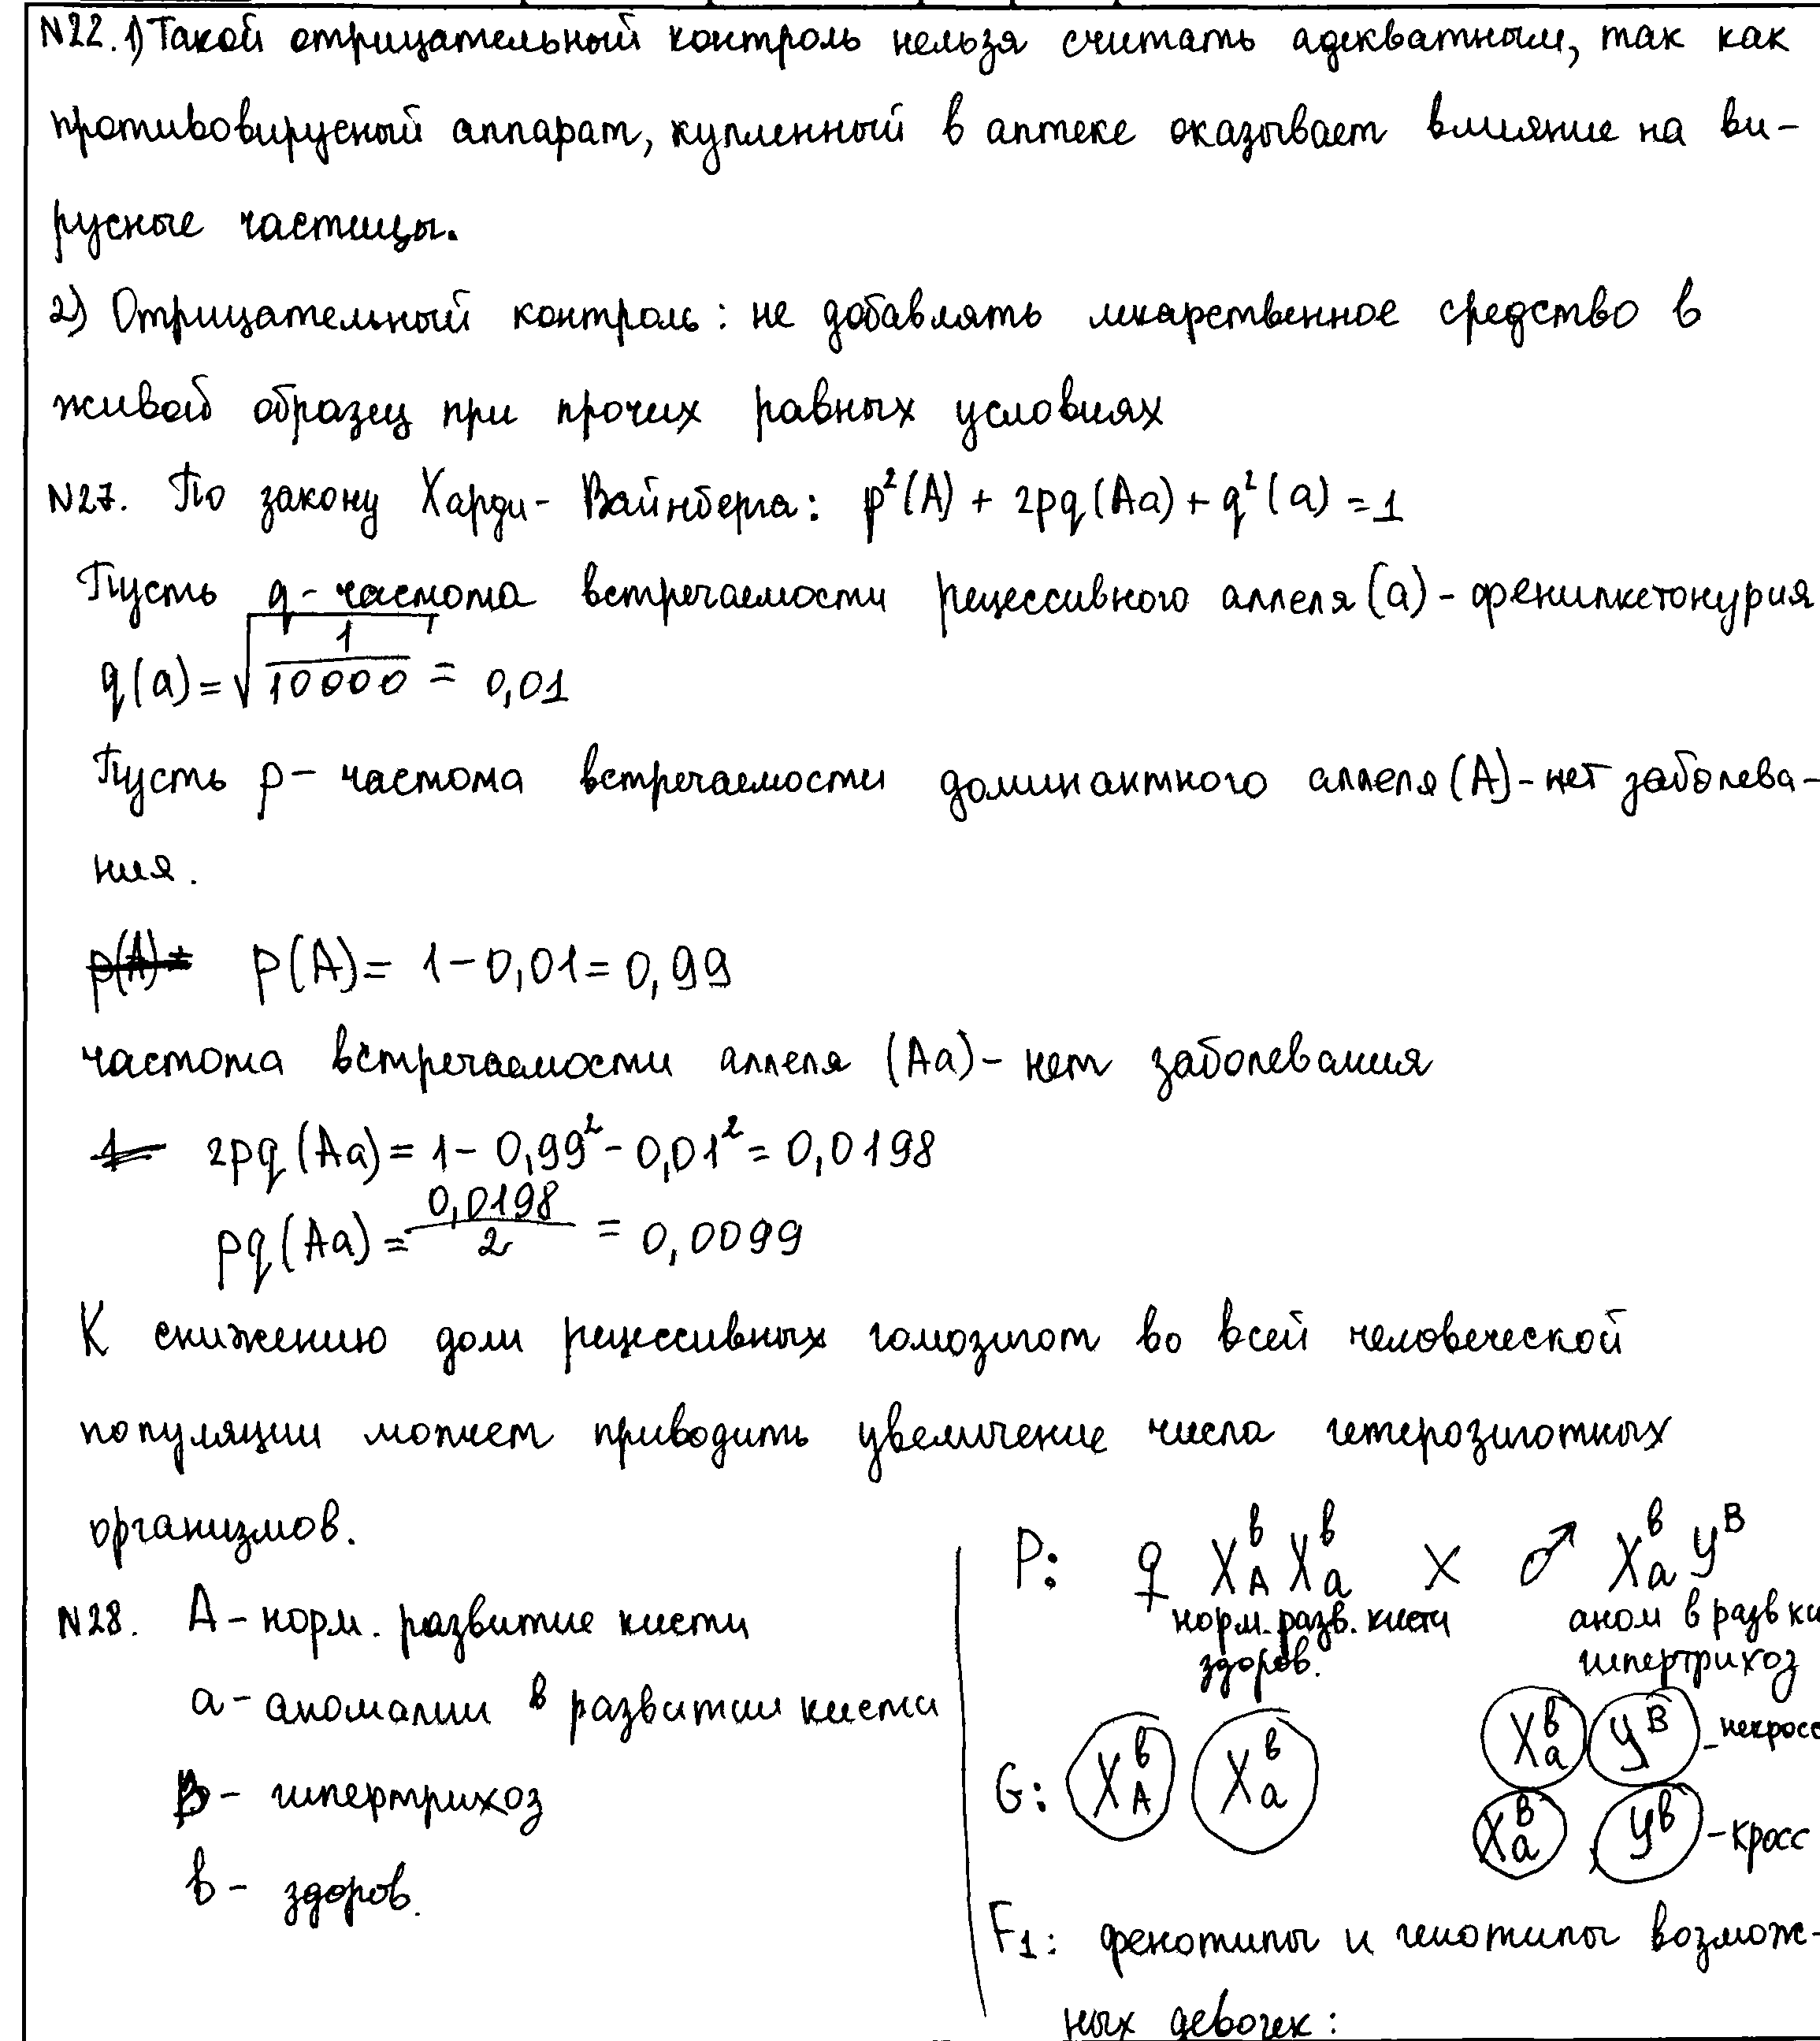 N22. 1) Такой отрицательный контроль нельзя считать адекватным, так как
противовирусный аппарат, купленный в аптеке оказывает влияние на ви-
русные частицы.
2) Отрицательный контроль: не добавлять лекарственное средство в
живой образец при прочих равных условиях
N27. По закону Харди-Вайнберга: p²(A) + 2pq(Aa) + q²(a) = 1
Пусть q - частота встречаемости рецессивного аллеля (a) - фенилкетонурия
q(a) = √(1/10000) = 0,01
Пусть p - частота встречаемости доминантного аллеля (A) - нет заболева-
ния.
p(A) = p(A) = 1 - 0,01 = 0,99
частота встречаемости аллеля (Aa) - нет заболевания
2pq (Aa) = 1 - 0,99² - 0,01² = 0,0198
pq (Aa) = 0,0198/2 = 0,0099
К снижению доли рецессивных гомозигот во всей человеческой
популяции может приводить увеличение числа гетерозиготных
организмов.
N28. А - норм. развитие кисти
а - аномалии в развитии кисти
В - гипертрихоз
в - здоров.
P: ♀ XᵇA Xᵇa × ♂ Xᵇa Yᴮ
норм. разв. кисти аном в разв ки
здоров. гипертрихоз
G: XᵇA Xᵇa Xᵇa Yᴮ - некросс
Xᴮa , Yᵇ - кросс
F1: фенотипы и генотипы возмож-
ных девочек: